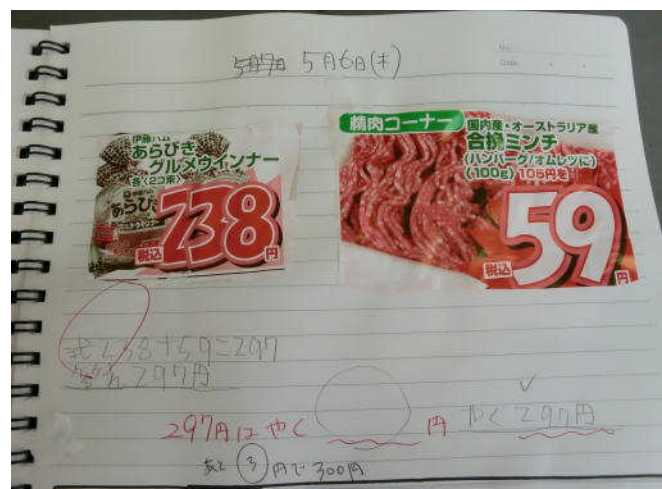 5月7日 5月6日(木)
No.
Date
伊藤ハム
あらびき
グルメウインナー
各(2コ束)
あらび
税込238円
精肉コーナー
国内産・オーストラリア産
合挽ミンチ
(ハンバーグ/オムレツに)
(100g) 105円を
税込59円
式238+59=297
答え297円
297円はやく 円 やく297円
あと3円で300円